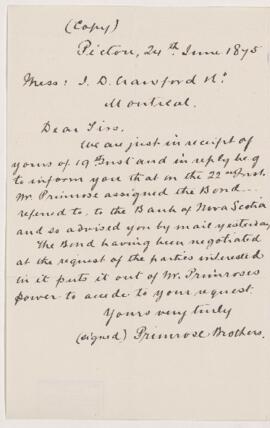 (Copy)
Pictou, 24th June 1875
Mess: J. D. Crawford &
Montreal.
Dear Sirs.
We are just in receipt of
yours of 19th Inst and in reply beg
to inform you that on the 22nd Inst.
Mr Primrose assigned the Bond
referred to, to the Bank of Nova Scotia
and so advised you by mail yesterday
The Bond having been negotiated
at the request of the parties interested
in it puts it out of Mr Primroses
power to accede to your request
Yours very truly
(signed) Primrose Brothers.